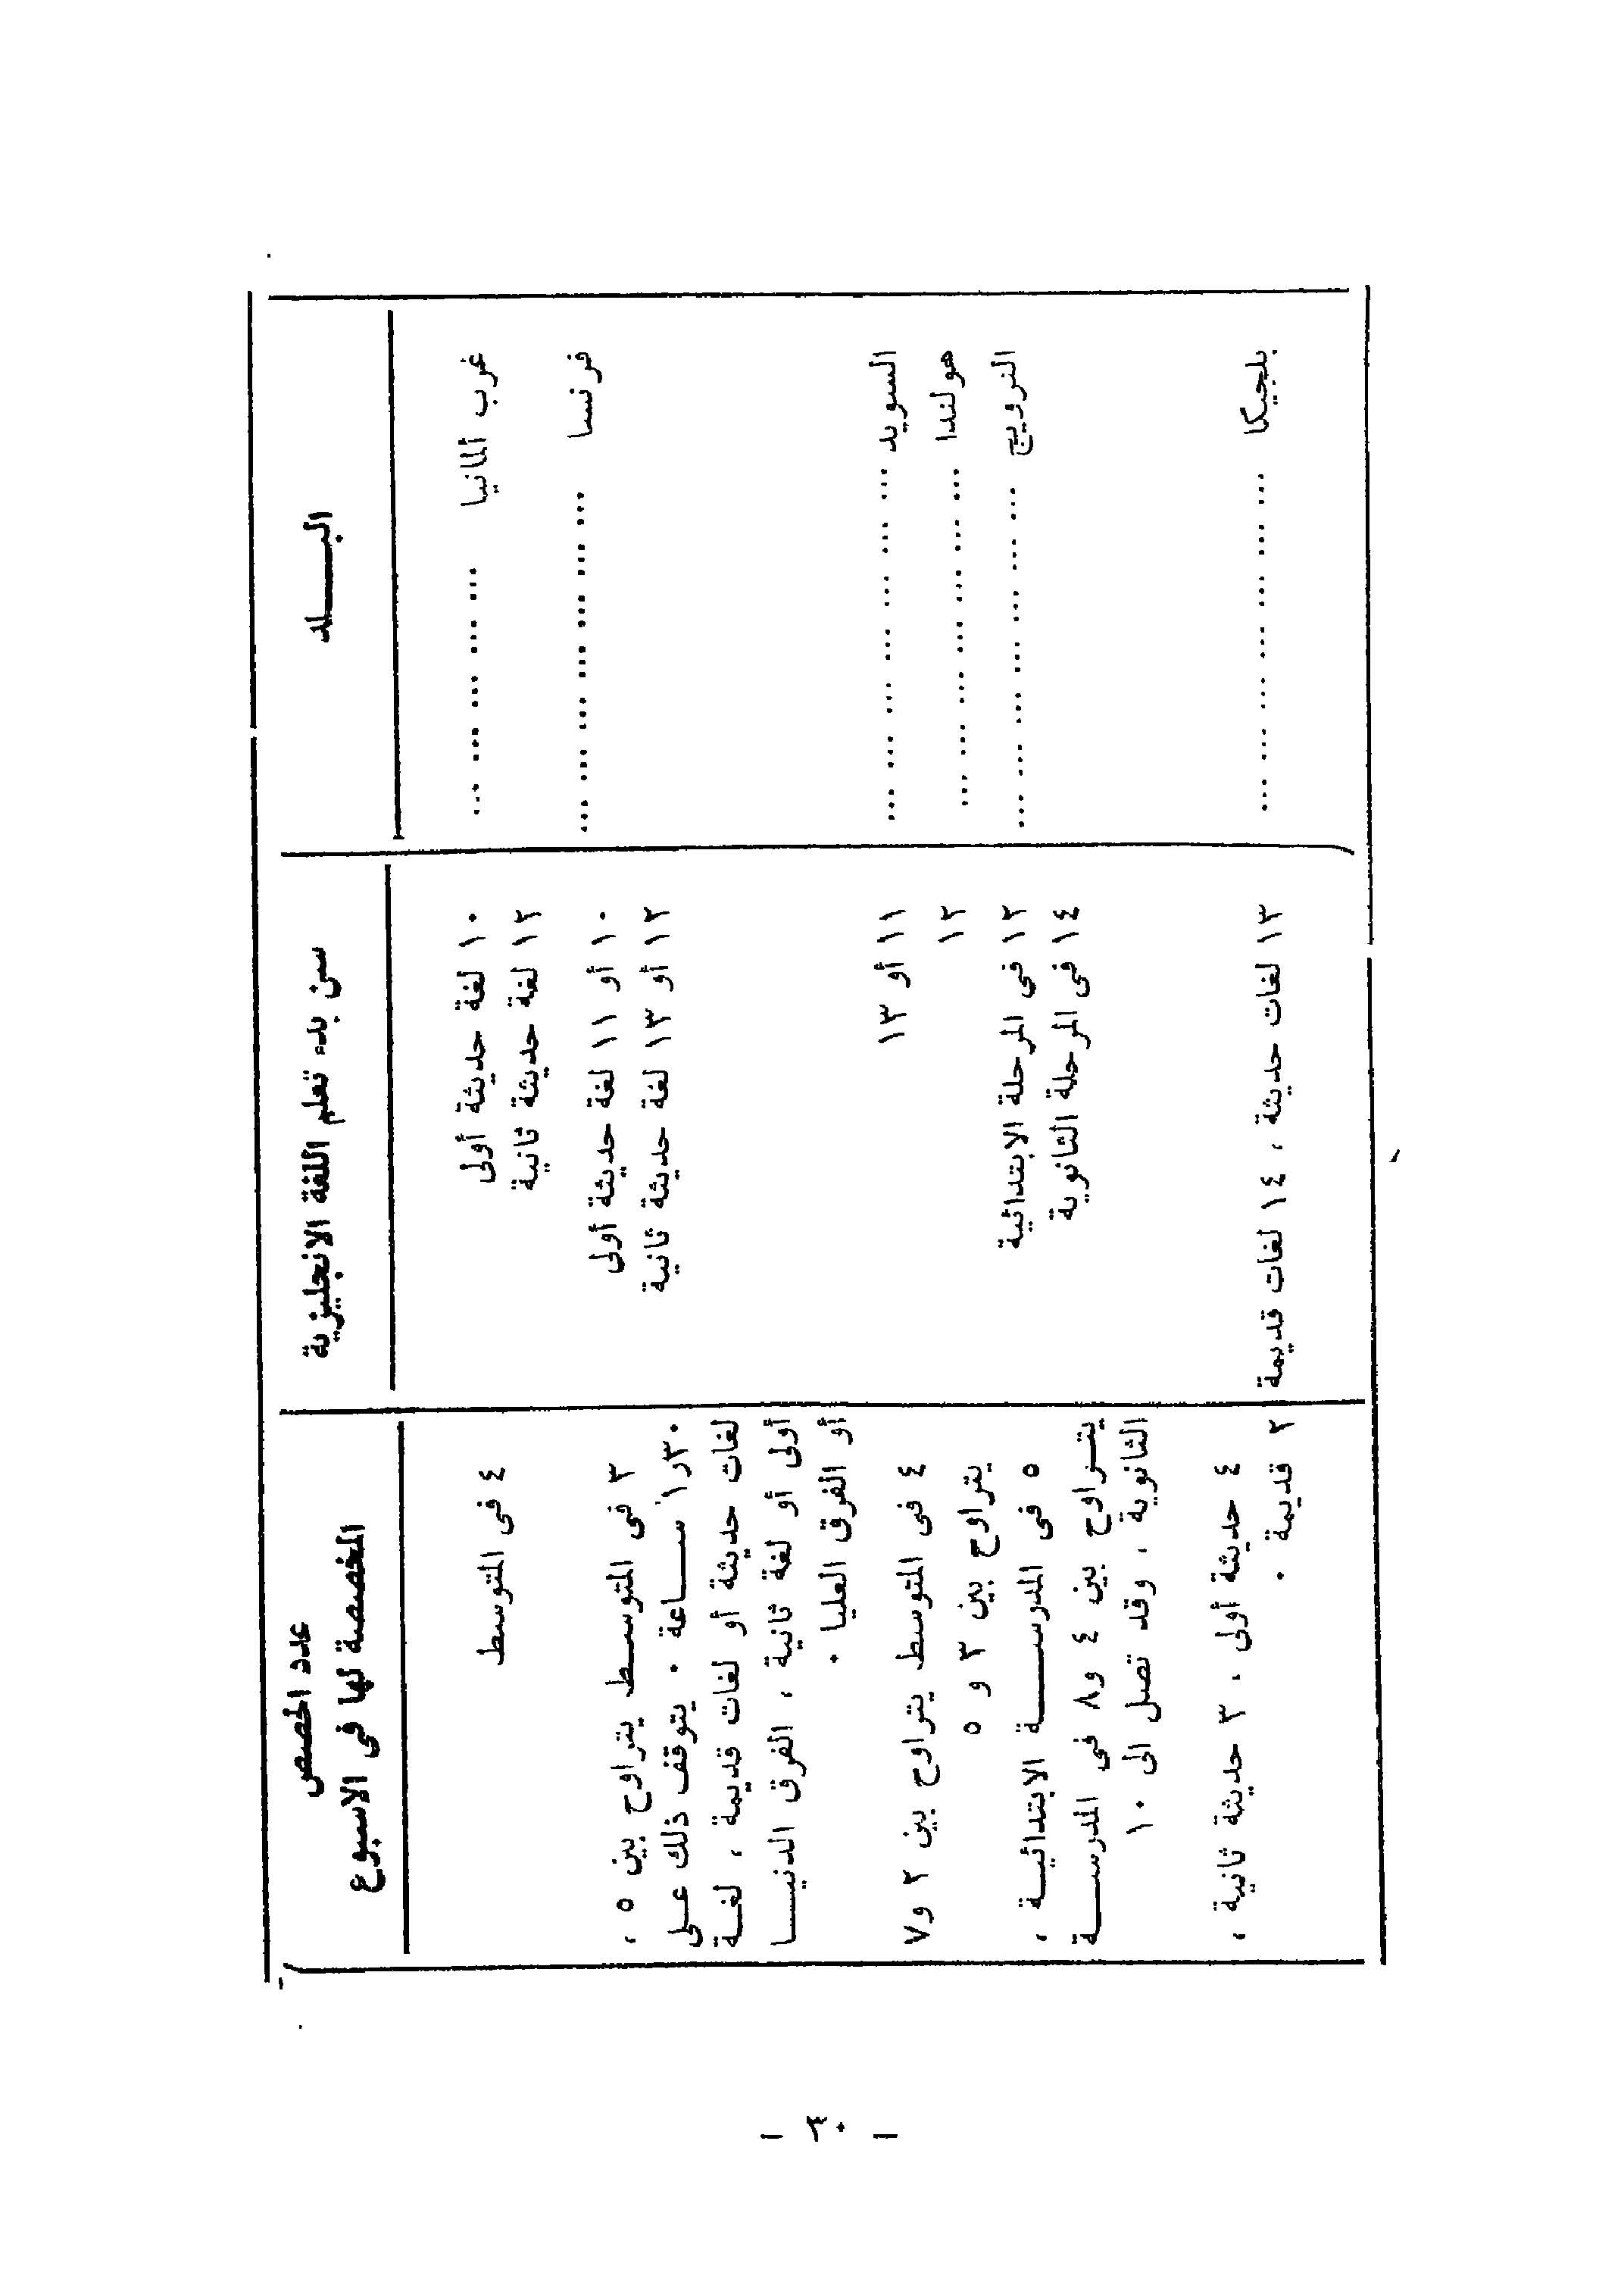 البـــــلد
سن بدء تعلم اللغة الانجليزية
عدد الحصص
المخصصة لها فى الاسبوع
غرب ألمانيا ... ... ... ... ...
١٠ لغة حديثة أولى
١٢ لغة حديثة ثانية
٤ فى المتوسط
فرنسا ... ... ... ... ... ... ...
١٠ أو ١١ لغة حديثة أولى
١٢ أو ١٣ لغة حديثة ثانية
٣ فى المتوسـط يتراوح بين ٥ ،
١٫٣٠ ســـاعة ٠ يتوقف ذلك عـلى
لغات حديثة أو لغات قديمة ، لغـة
أولى أو لغة ثانية ، الفرق الدنيـــا
أو الفرق العليا ٠
السويد ... ... ... ... ... ... ...
١١ أو ١٣
٤ فى المتوسط يتراوح بين ٢ و٧
هولندا ... ... ... ... ... ... ...
١٢
يتراوح بين ٣ و ٥
النرويج ... ... ... ... ... ... ...
١٢ في المرحلة الابتدائية
١٤ فى المرحلة الثانوية
٥ فى المدرســـة الابتدائيـة ،
يتـراوح بين ٤ و٨ فى المدرســـة
الثانوية ، وقد تصل الى ١٠
بلجيكا ... ... ... ... ... ... ...
١٣ لغات حديثة ، ١٤ لغات قديمة
٤ حديثة أولى ، ٣ حديثة ثانية ،
٢ قديمة ٠